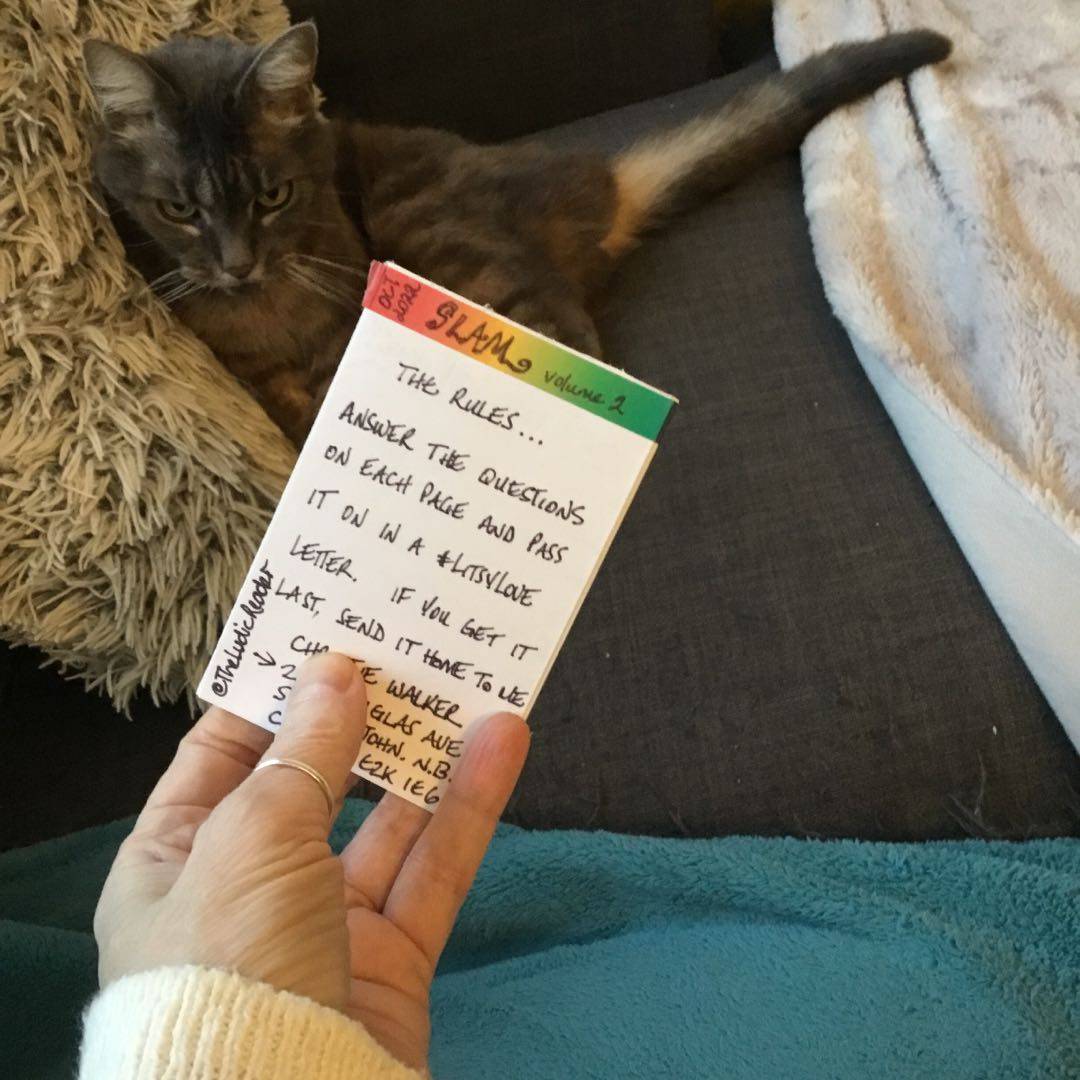 OCT
2022
SLAM
volume 2
THE RULES...
ANSWER THE QUESTIONS
ON EACH PAGE AND PASS
IT ON IN A #LITSYLOVE
LETTER. IF YOU GET IT
LAST, SEND IT HOME TO ME
WALKER
AVE
N.B.
E2K 1E6
@TheLudicReader